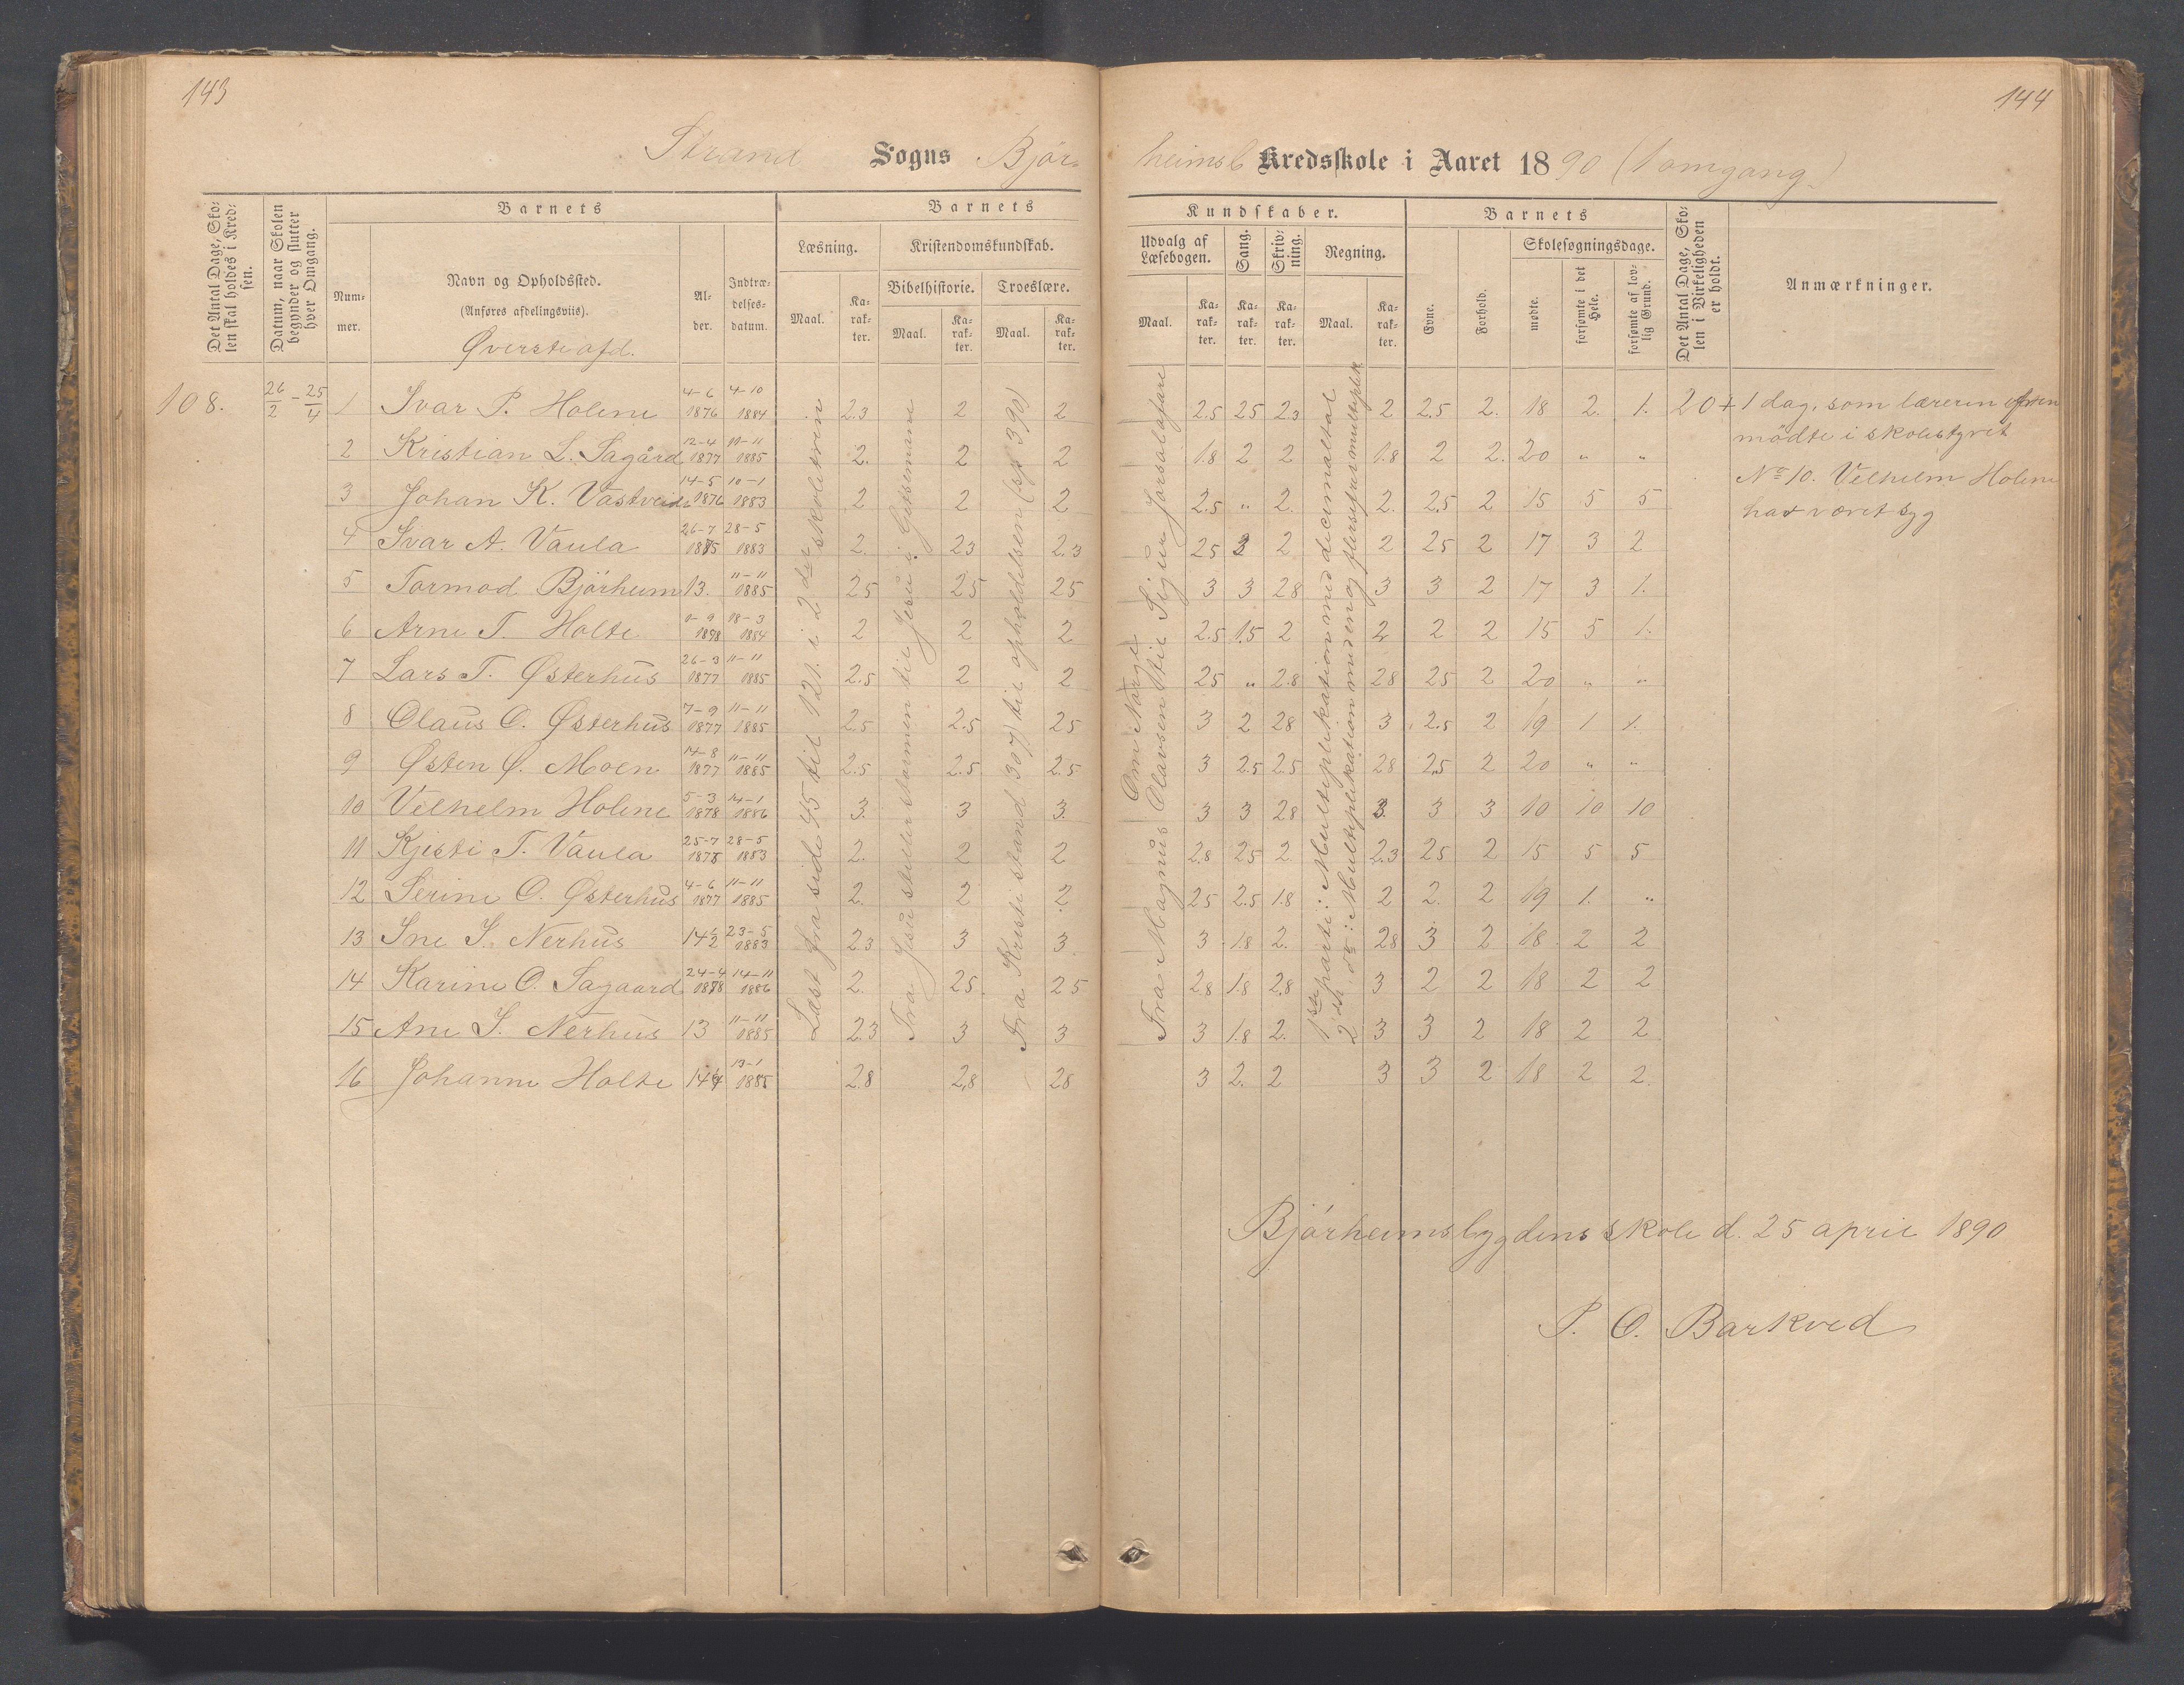 143
144
Strand Sogns Bjór- heimsb Kredsskole i Aaret 1890 (1 omgang)
Det Antal Dage, Skolen skal holdes i Kredsen.
Datum, naar Skolen begynder og slutter hver Omgang.
Barnets
Nummer.
Navn og Opholdssted.
(Anføres afdelingsviis).
Øverste afd.
Alder.
Indtrædelsesdatum.
Barnets
Læsning.
Maal.
Karakter.
Kristendomskundskab.
Bibelhistorie.
Maal.
Karakter.
Troeslære.
Maal.
Karakter.
Kundskaber.
Udvalg af Læsebogen.
Maal.
Karakter.
Sang.
Karakter.
Skrivning.
Karakter.
Regning.
Maal.
Karakter.
Barnets
Evne.
Forhold.
Skolesøgningsdage.
mødte.
forsømte i det Hele.
forsømte af lovlig Grund.
Det Antal Dage, Skolen i Virkeligheden er holdt.
Anmærkninger.
108. 26/2 - 25/4 1 Ivar P. Holene 4-6 1876 4-10 1884 2.3 2 2 2.5 25 23 2 2.5 2. 18 2. 1. 20+ 1 dag, som læreren
mödte i skolestyret
2 Kristian L. Sagård 12-4 1877 11-11 1885 2. 2 2 1.8 2 2 1.8 2 2. 20 " "
3 Johan K. Vastveid 14-5 1876 10-1 1883 2 2 2 2.5 " 2. 2. 2.5 2 15 5 5
No 10. Velhelm Holene
har været syg
4 Ivar A. Vaula 26-7 1875 28-5 1883 2. 23 2.3 25 3 2 2 25 2 17 3 2
5 Tormod Björheim 13. 11-11 1885 25 25 25 3 3 28 3 3 2 17 3 1.
6 Arne T. Holte 9-9 1878 18-3 1884 2 2 2 2.5 1.5 2 2 2 2 15 5 1.
7 Lars T. Østerhus 26-3 1877 11-11 1885 2.5 2 2 25 " 2.8 28 25 2 20 " "
8 Olaus O. Østerhus 7-9 1877 11-11 1885 2.5 2.5 25 3 2 28 3 2.5 2 19 1 1.
9 Østen Ø. Moen 14-8 1877 11-11 1885 2.5 2.5 2.5 3 2.5 2.5 28 2.5 2 20 " "
10 Velhelm Holene 5-3 1878 14-1 1886 3. 3 3. 3 3 28 3. 3 3 10 10 10
11 Kjesti T. Vaula 25-7 1875 28-5 1883 2. 2 2 2.8 25 2. 2.3 25 2 15 5 5
12 Serine O. Østerhus 4-6 1877 11-11 1885 2. 2 2 25 2.5 1.8 2 2. 2 19 1. "
13 Ine S. Nerhus 14 1/2 23-5 1883 23 3 3 3 1.8 2. 28 3 2 18 2 2
14 Karine O. Sagaard 24-4 1878 14-11 1886 2. 25 25 2.8 1.8 2.8 3 2 2 18 2 2
15 Ane S. Nerhus 13 11-11 1885 2.3 3 3 3 1.8 2. 3 3 2 18 2 2
16 Johanne Holte 14 13-1 1885 2.8 2.8 28 3 2. 2 3 3 2 18 2 2.
Læst fra side 45 til 121. i 2den skoletrin
Fra Jesu stiller stormen til Jesu i Getsemane
Fra Kristi stand 307) til opholdelsen (sp 390)
Om Norge
Fra Magnus Olavsen til Sigur Jorsalafare
1ste parti: Multiplikation med decimaltal
2det do: Multiplikation med en og flersifret multiplik
Björheimsbygdens skole d. 25 april 1890
P. O. Barkved